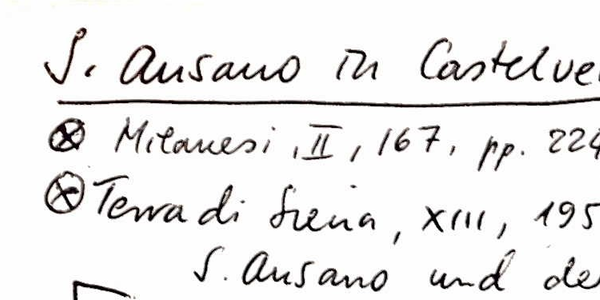 S. Ansano in Castelve
⊗ Milanesi, II, 167, pp. 224
⊗ Terra di Siena, XIII, 195
S. Ansano und de